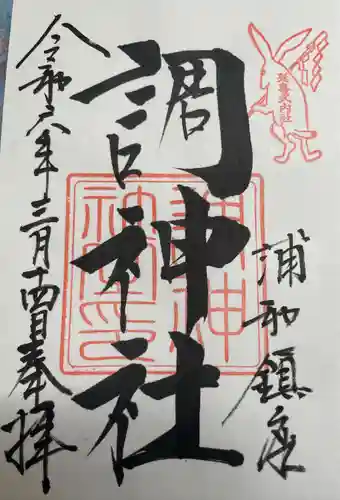 延喜式内社
浦和鎮座
調神社
調神社印
令和六年三月十四日奉拝